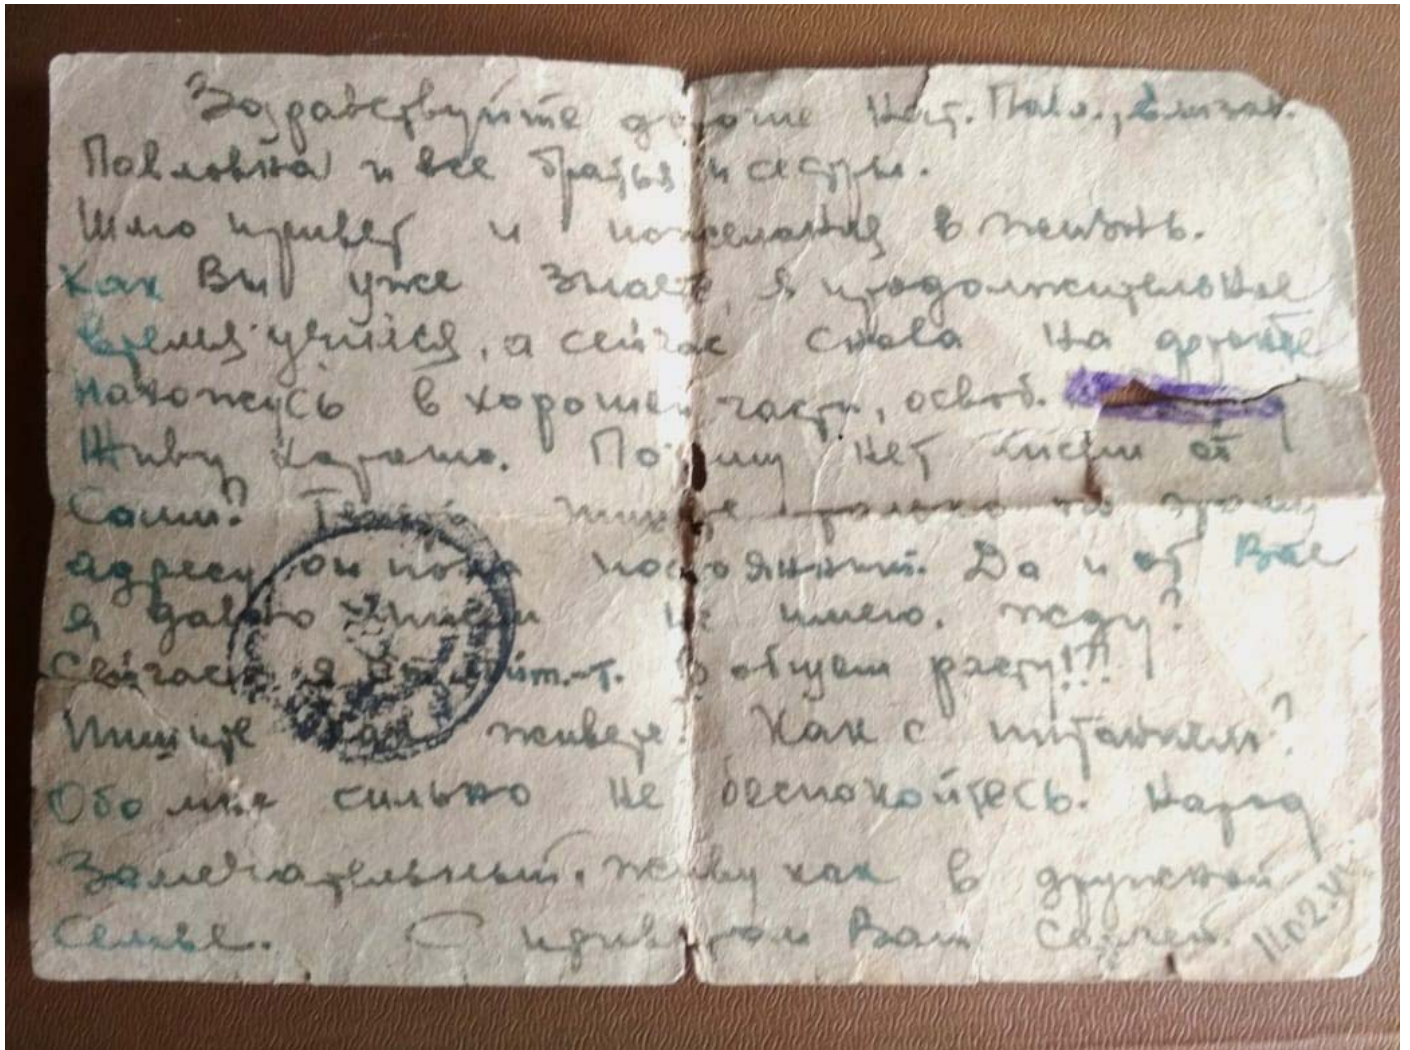 Здравствуйте дорогие Нат. Павл., Елизав.
Павловна и все братья и сестры.
Шлю привет и пожелания в жизнь.
Как Вы уже знаете, я продолжительное
время учился, а сейчас снова на фронте
нахожусь в хорошей части, освоб.
Живу хорошо. Почему нет писем от
Саши? Теперь пишите только по этому
адресу он пока постоянный. Да и от Вас
я давно писем не имею. жду?
Сейчас я В общем расту!!!
Пишите как живете? Как с питанием?
Обо мне сильно не беспокойтесь. Народ
Замечательный. живу как в дружной
Семье. С приветом Ваш Сергей.